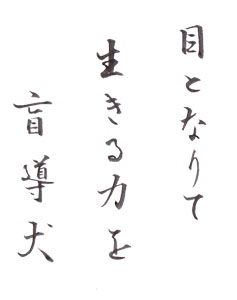 目となりて
生きる力を
盲導犬